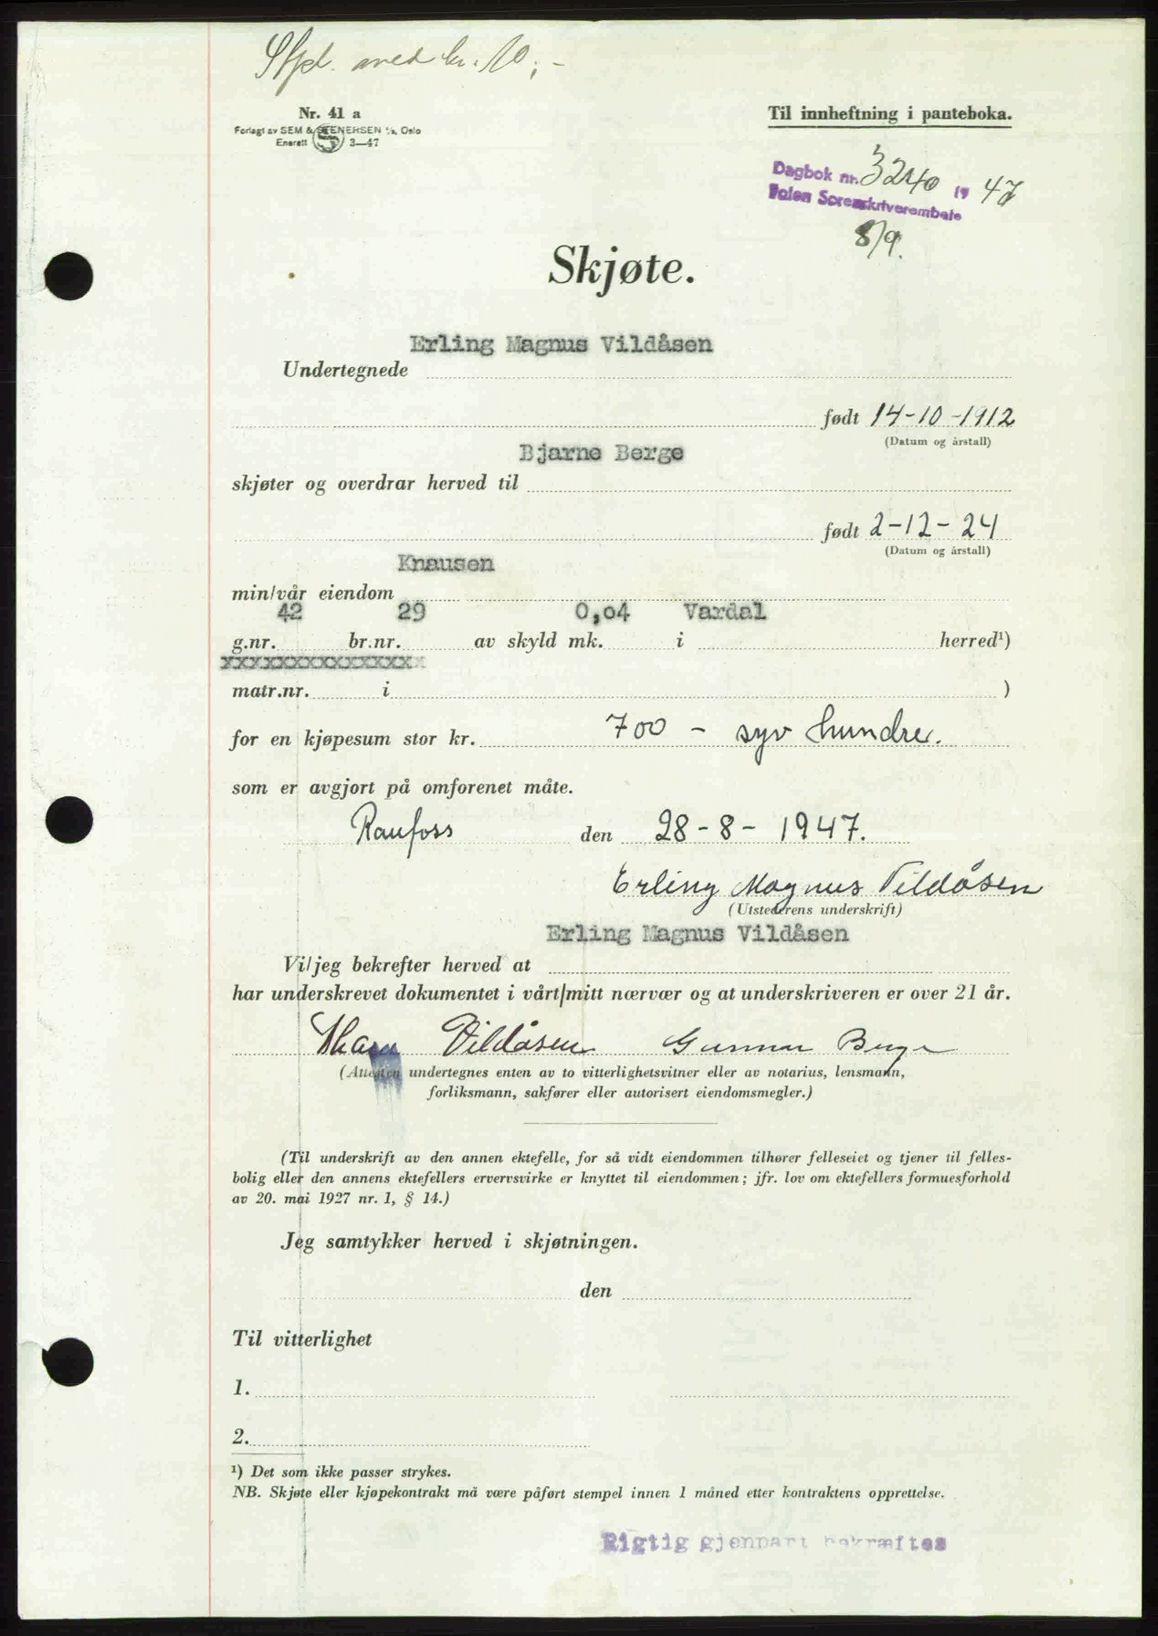 Stpl. med kr. 10,-
Nr. 41 a
Forlagt av SEM & STENERSEN A/S, Oslo
Enerett 3—47
Til innheftning i panteboka.
Dagbok nr. 3240 19 47
Toten Sorenskriverembete
8/9.
Skjøte.
Erling Magnus Vildåsen
Undertegnede
født 14-10-1912
(Datum og årstall)
Bjarne Berge
skjøter og overdrar herved til
født 2-12-24
(Datum og årstall)
Knausen
min/vår eiendom
42 29 0,04 Vardal
g.nr. br.nr. av skyld mk. i herred¹)
xxxxxxxxxxxxxxxx
matr.nr. i )
for en kjøpesum stor kr. 700 - syv hundre.
som er avgjort på omforenet måte.
Raufoss den 28-8-1947.
Erling Magnus Vildåsen
(Utstederens underskrift)
Erling Magnus Vildåsen
Vi/jeg bekrefter herved at
har underskrevet dokumentet i vårt/mitt nærvær og at underskriveren er over 21 år.
Vildåsen Gunnar Berge
(Attesten undertegnes enten av to vitterlighetsvitner eller av notarius, lensmann,
forliksmann, sakfører eller autorisert eiendomsmegler.)
(Til underskrift av den annen ektefelle, for så vidt eiendommen tilhører felleseiet og tjener til felles-
bolig eller den annens ektefellers ervervsvirke er knyttet til eiendommen; jfr. lov om ektefellers formuesforhold
av 20. mai 1927 nr. 1, § 14.)
Jeg samtykker herved i skjøtningen.
den
Til vitterlighet
1.
2.
¹) Det som ikke passer strykes.
NB. Skjøte eller kjøpekontrakt må være påført stempel innen 1 måned etter kontraktens opprettelse.
Rigtig gjenpart bekræftes